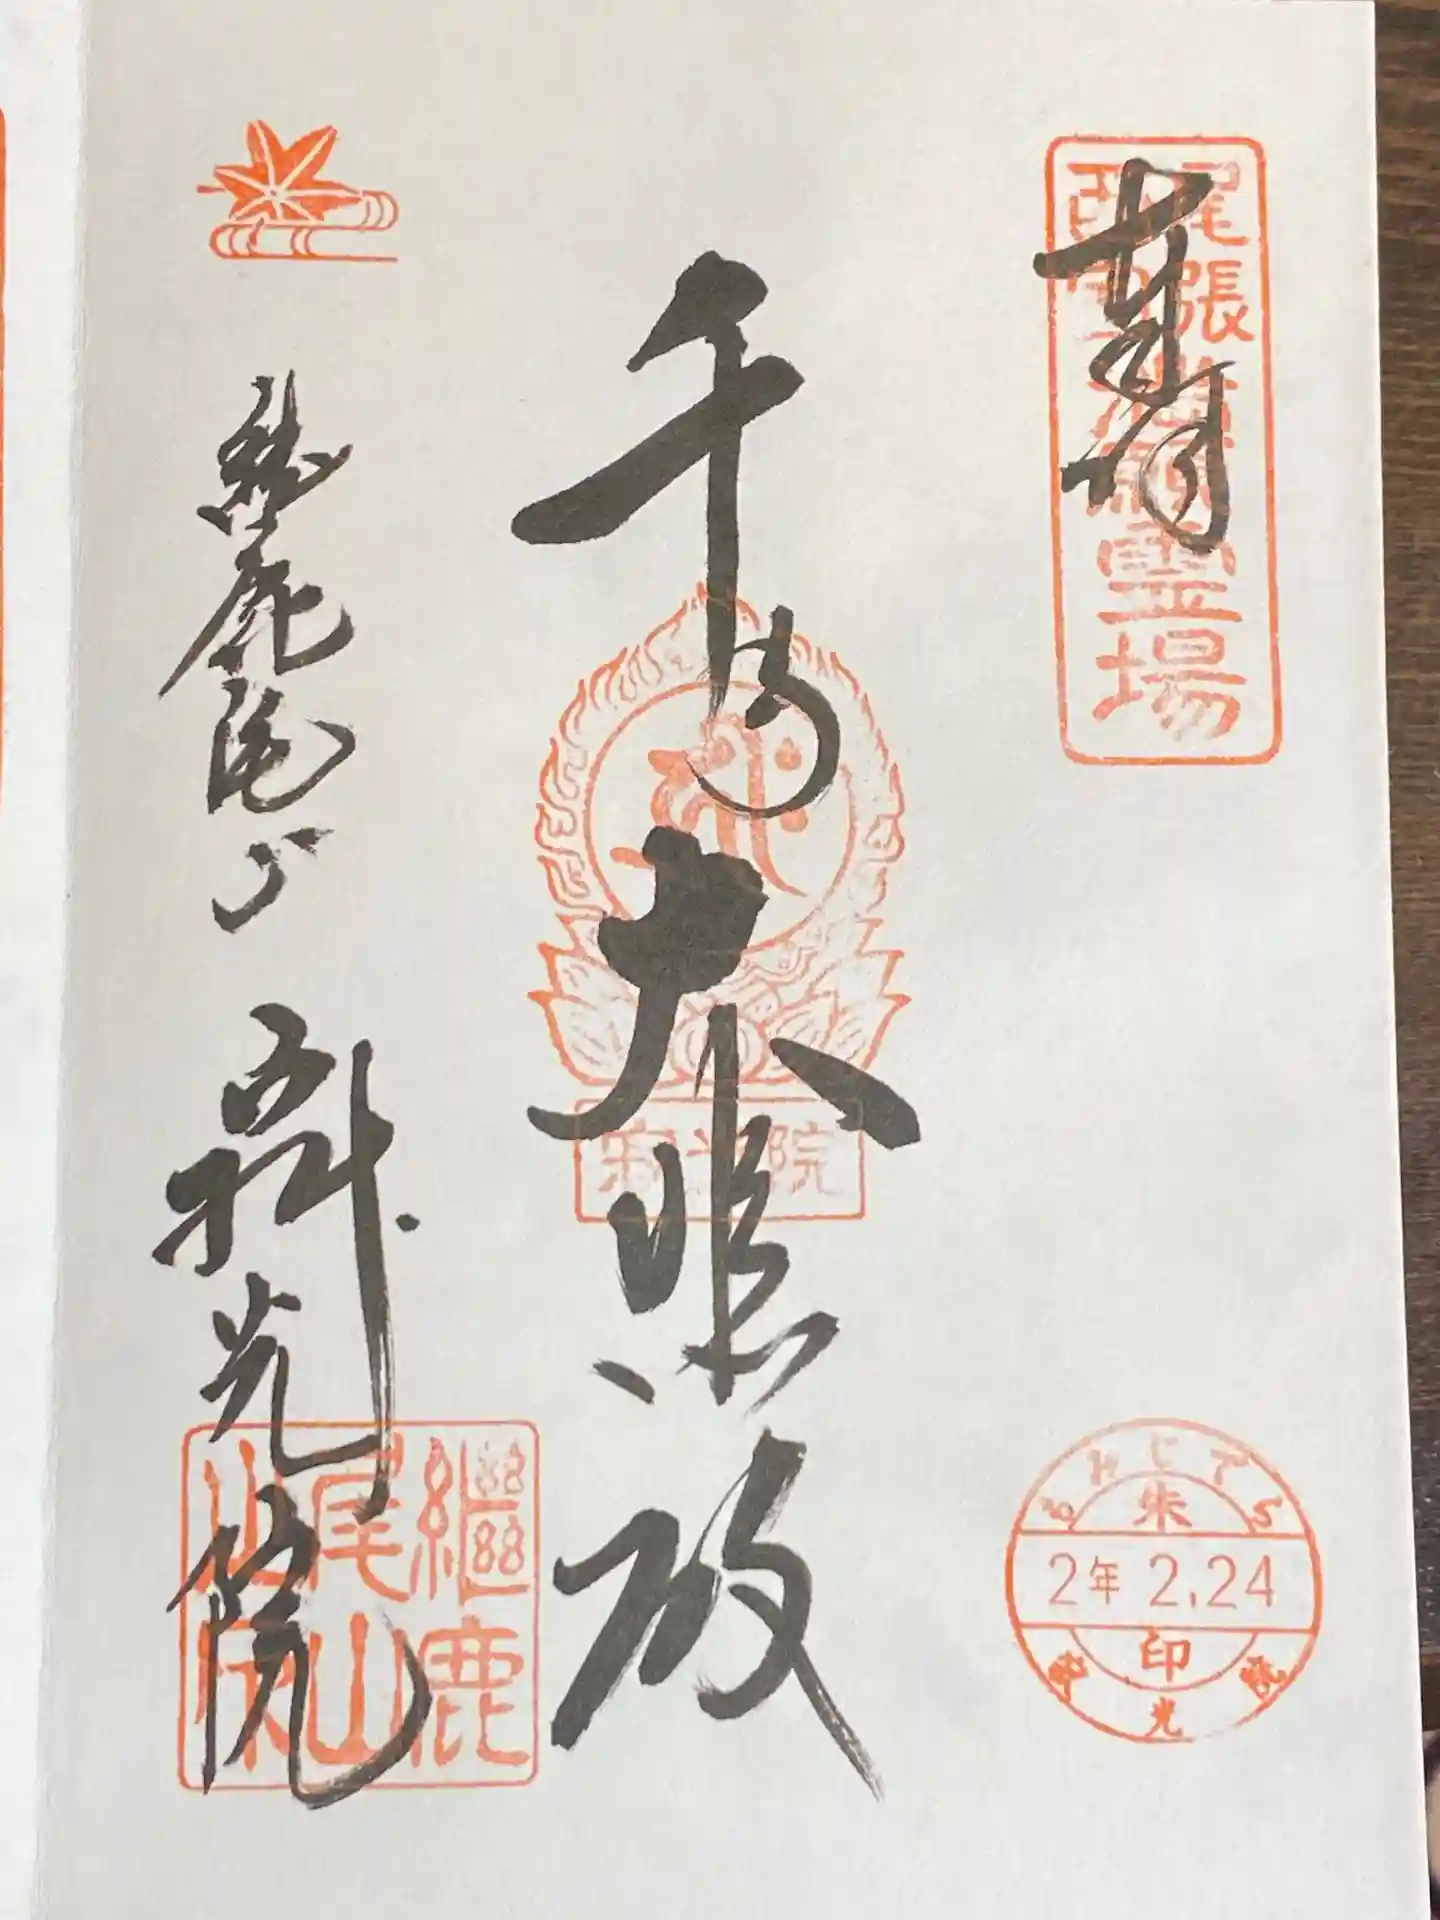 奉拝
尾張
西国
霊場
千手大悲殿
寂光院
継鹿尾山
寂光院
繼鹿
尾山
朱
2年 2.24
印
寂光院